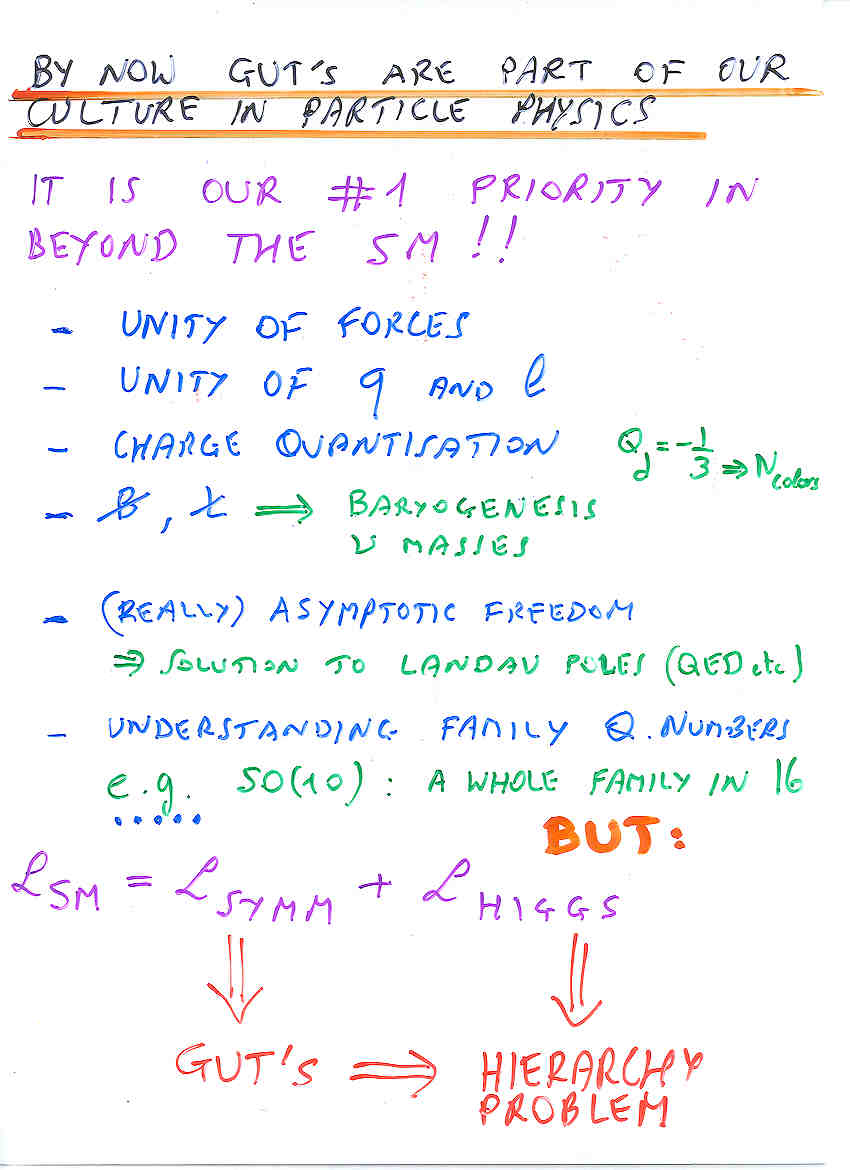 BY NOW GUT'S ARE PART OF OUR
CULTURE IN PARTICLE PHYSICS
IT IS OUR #1 PRIORITY IN
BEYOND THE SM !!
- UNITY OF FORCES
- UNITY OF q AND ℓ
- CHARGE QUANTISATION Q_d = -1/3 ⇒ N_colors
- B̸, L̸ ⇒ BARYOGENESIS
ν MASSES
- (REALLY) ASYMPTOTIC FREEDOM
⇒ SOLUTION TO LANDAU POLES (QED etc)
- UNDERSTANDING FAMILY Q. NUMBERS
e.g. SO(10) : A WHOLE FAMILY IN 16
.....
BUT:
ℒ_SM = ℒ_SYMM + ℒ_HIGGS
⇓ ⇓
GUT'S ⇒ HIERARCHY
PROBLEM